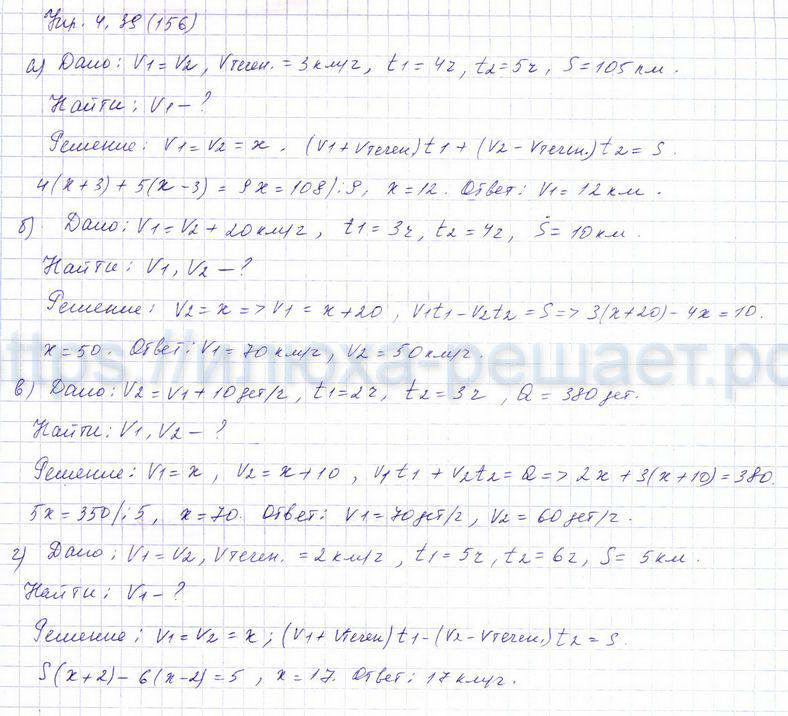 Упр. 4, 39 (156)
а) Дано: V1 = V2, Vтечен. = 3 км/ч, t1 = 4ч, t2 = 5ч, S = 105 км.
Найти: V1 - ?
Решение: V1 = V2 = x. (V1 + Vтечен) t1 + (V2 - Vтечен.) t2 = S.
4(x+3) + 5(x-3) = 9x = 108 /:9, x = 12. Ответ: V1 = 12 км.
б) Дано: V1 = V2 + 20 км/ч, t1 = 3ч, t2 = 4ч, S = 10 км.
Найти: V1, V2 - ?
Решение: V2 = x => V1 = x + 20, V1t1 - V2t2 = S => 3(x+20) - 4x = 10.
x = 50. Ответ: V1 = 70 км/ч, V2 = 50 км/ч.
https://илюха-решает.рф
в) Дано: V2 = V1 + 10 дет/ч, t1 = 2ч, t2 = 3ч, Q = 380 дет.
Найти: V1, V2 - ?
Решение: V1 = x, V2 = x + 10, V1t1 + V2t2 = Q => 2x + 3(x+10) = 380.
5x = 350 /:5, x = 70. Ответ: V1 = 70 дет/ч, V2 = 60 дет/ч.
г) Дано: V1 = V2, Vтечен. = 2 км/ч, t1 = 5ч, t2 = 6ч, S = 5 км.
Найти: V1 - ?
Решение: V1 = V2 = x; (V1 + Vтечен) t1 - (V2 - Vтечен.) t2 = S
5(x+2) - 6(x-2) = 5, x = 17. Ответ: 17 км/ч.